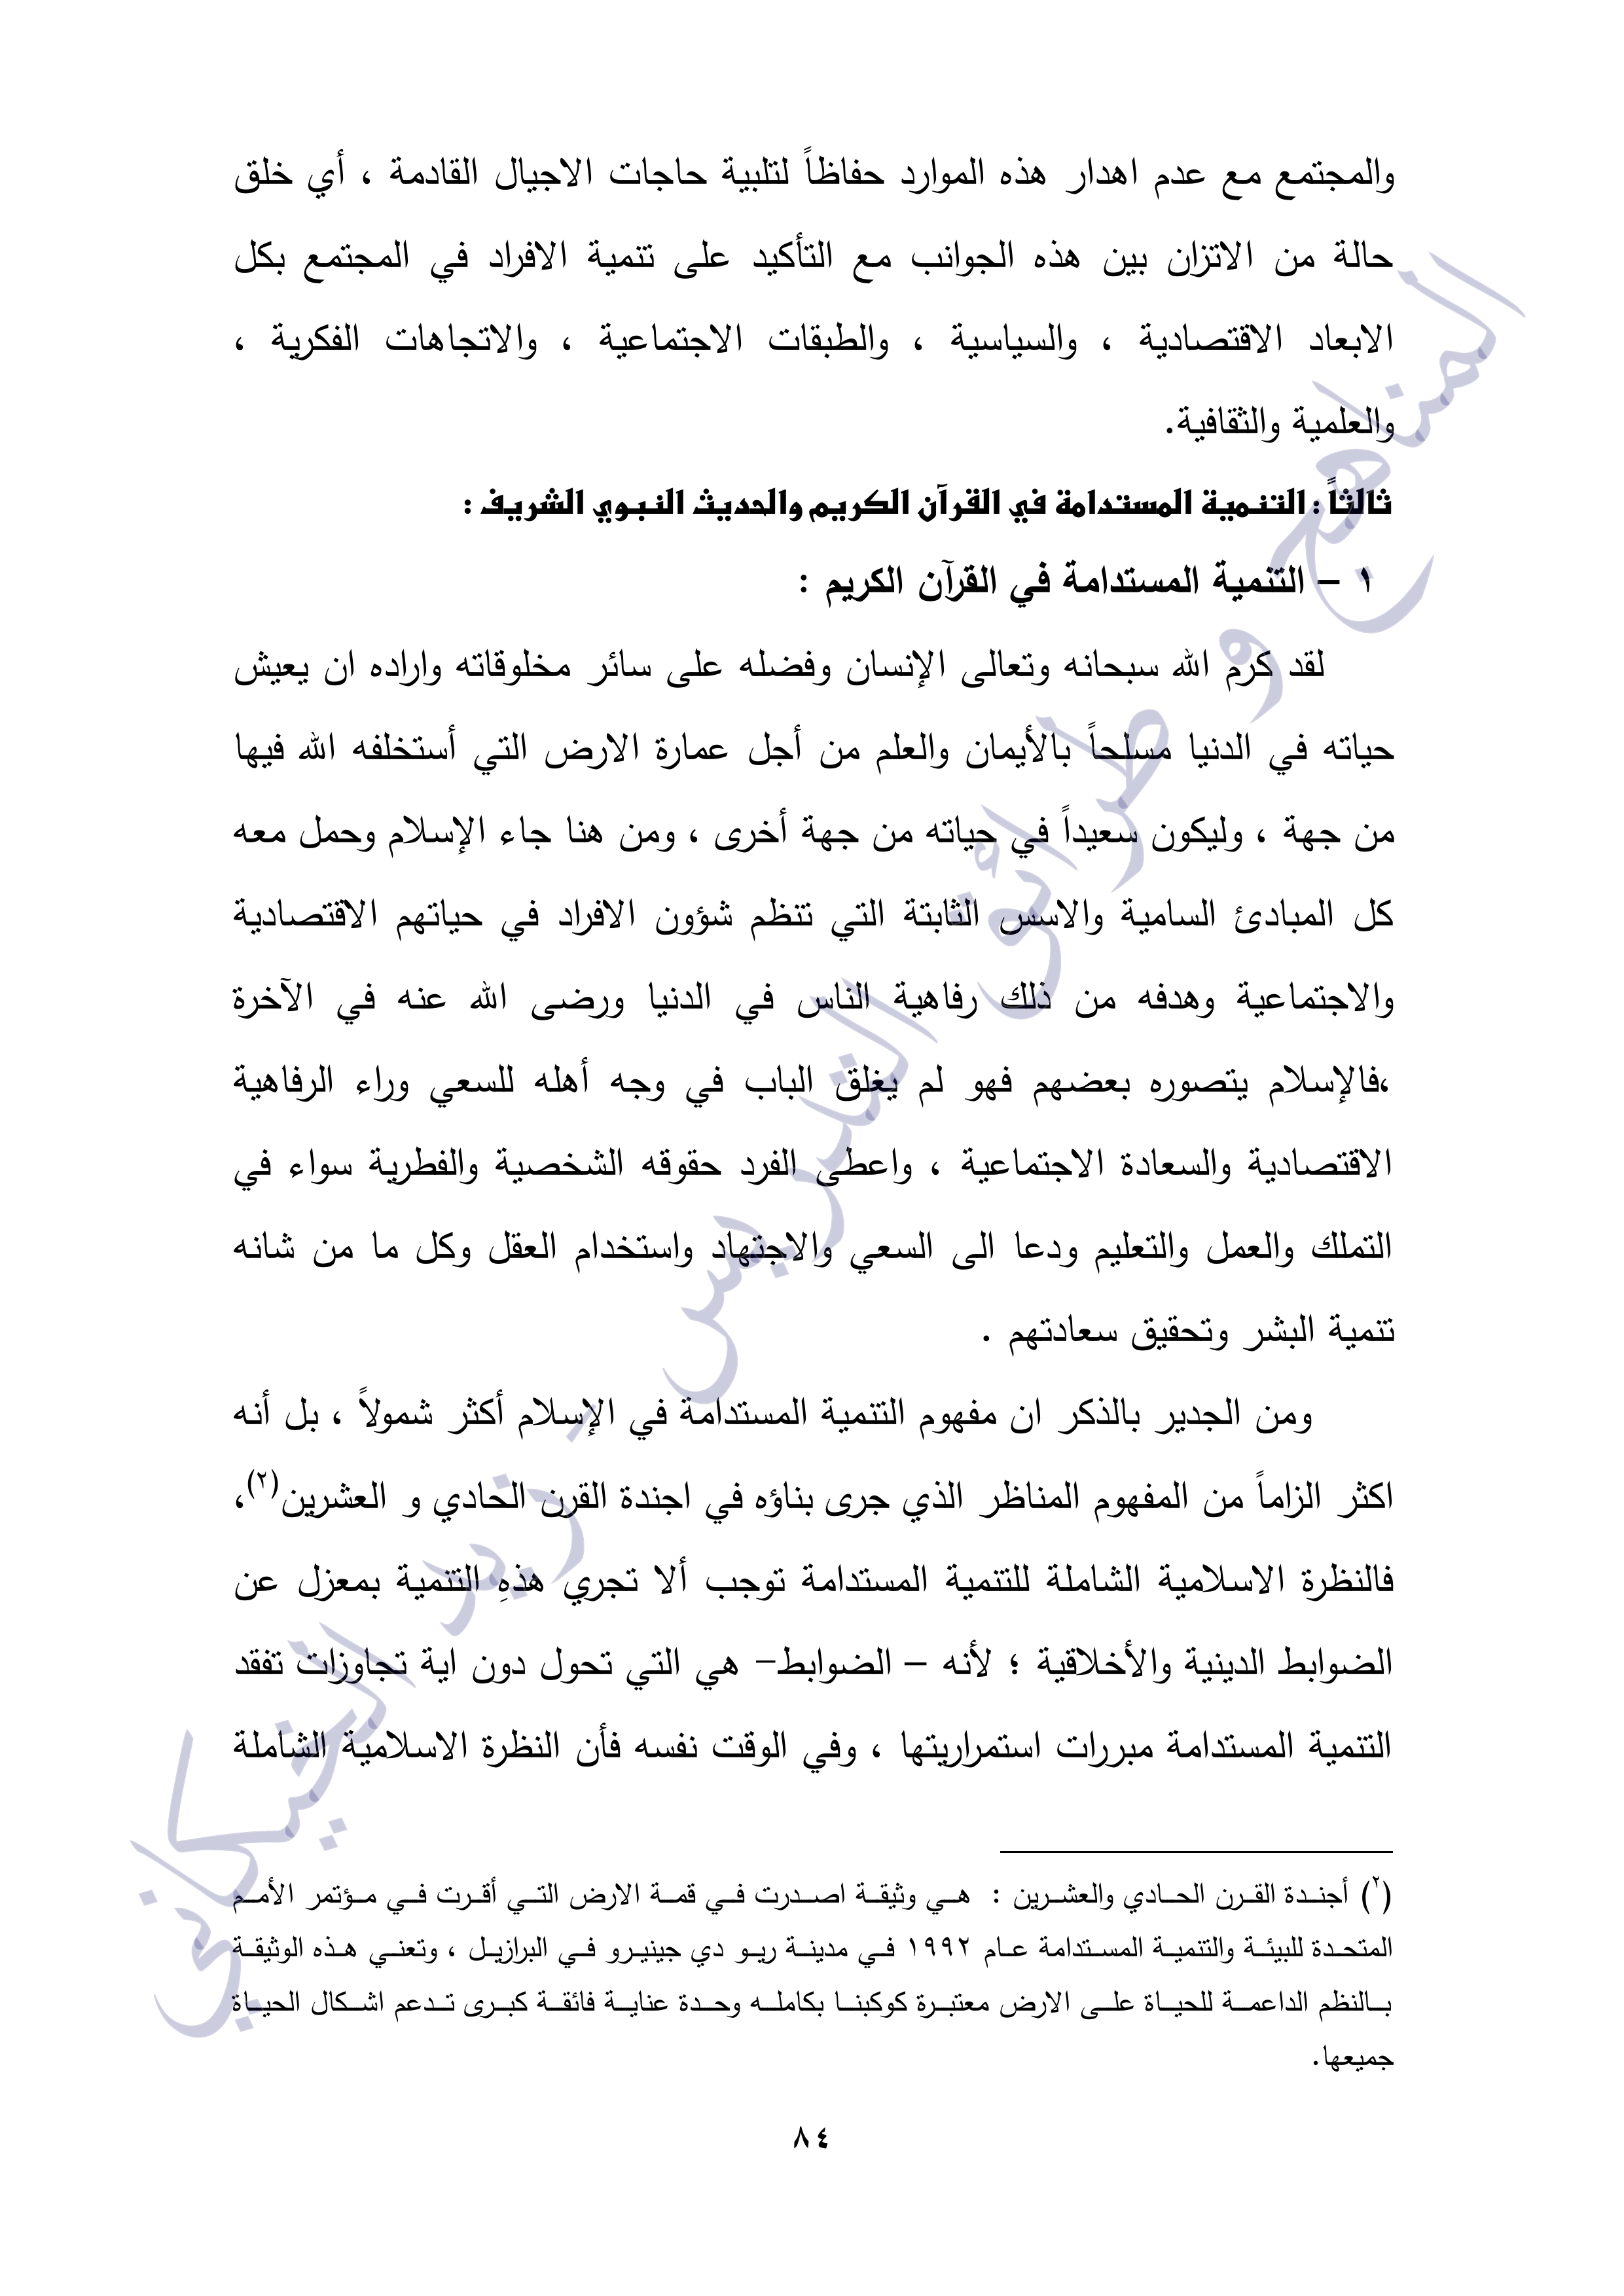 والمجتمع مع عدم اهدار هذه الموارد حفاظاً لتلبية حاجات الاجيال القادمة ، أي خلق
حالة من الاتزان بين هذه الجوانب مع التأكيد على تنمية الافراد في المجتمع بكل
الابعاد الاقتصادية ، والسياسية ، والطبقات الاجتماعية ، والاتجاهات الفكرية ،
والعلمية والثقافية.
ثالثاً : التنمية المستدامة في القرآن الكريم والحديث النبوي الشريف :
١ – التنمية المستدامة في القرآن الكريم :
لقد كرم الله سبحانه وتعالى الإنسان وفضله على سائر مخلوقاته واراده ان يعيش
حياته في الدنيا مسلحاً بالأيمان والعلم من أجل عمارة الارض التي أستخلفه الله فيها
من جهة ، وليكون سعيداً في حياته من جهة أخرى ، ومن هنا جاء الإسلام وحمل معه
كل المبادئ السامية والاسس الثابتة التي تنظم شؤون الافراد في حياتهم الاقتصادية
والاجتماعية وهدفه من ذلك رفاهية الناس في الدنيا ورضى الله عنه في الآخرة
،فالإسلام يتصوره بعضهم فهو لم يغلق الباب في وجه أهله للسعي وراء الرفاهية
الاقتصادية والسعادة الاجتماعية ، واعطى الفرد حقوقه الشخصية والفطرية سواء في
التملك والعمل والتعليم ودعا الى السعي والاجتهاد واستخدام العقل وكل ما من شانه
تنمية البشر وتحقيق سعادتهم .
ومن الجدير بالذكر ان مفهوم التنمية المستدامة في الإسلام أكثر شمولاً ، بل أنه
اكثر الزاماً من المفهوم المناظر الذي جرى بناؤه في اجندة القرن الحادي و العشرين(٢)،
فالنظرة الاسلامية الشاملة للتنمية المستدامة توجب ألا تجري هذهِ التنمية بمعزل عن
الضوابط الدينية والأخلاقية ؛ لأنه – الضوابط– هي التي تحول دون اية تجاوزات تفقد
التنمية المستدامة مبررات استمراريتها ، وفي الوقت نفسه فأن النظرة الاسلامية الشاملة
(٢) أجندة القرن الحادي والعشرين : هي وثيقة اصدرت في قمة الارض التي أقرت في مؤتمر الأمم
المتحدة للبيئة والتنمية المستدامة عام ١٩٩٢ في مدينة ريو دي جينيرو في البرازيل ، وتعني هذه الوثيقة
بالنظم الداعمة للحياة على الارض معتبرة كوكبنا بكامله وحدة عناية فائقة كبرى تدعم اشكال الحياة
جميعها.
٨٤
المناهج و طرائق التدريس - زيد الخيكاني